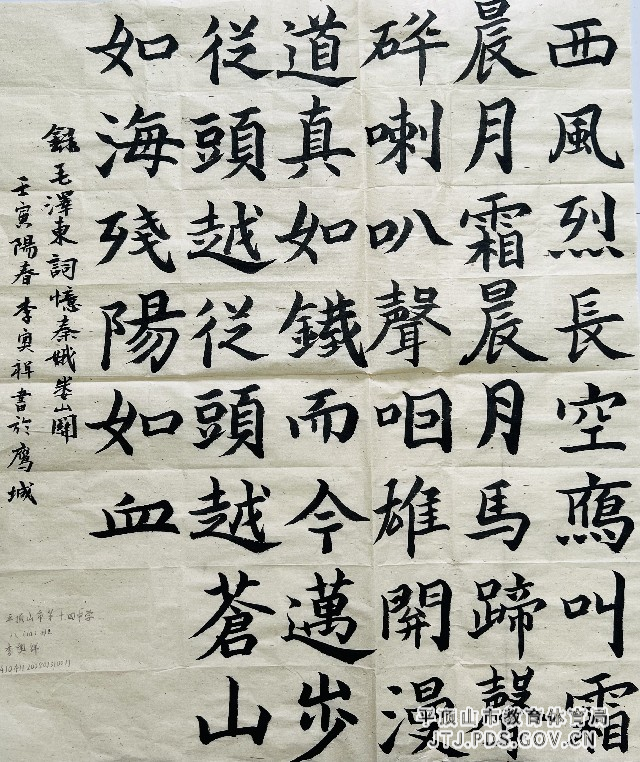 西風烈長空鴈叫霜
晨月霜晨月馬蹄聲
砕喇叭聲咽雄関漫
道真如鐵而今邁步
從頭越從頭越蒼山
如海残陽如血
録毛澤東詞憶秦娥娄山関
壬寅陽春李寅祥書於鷹城
平顶山市第十四中学
李寅祥
平顶山市教育体育局
JTJ.PDS.GOV.CN